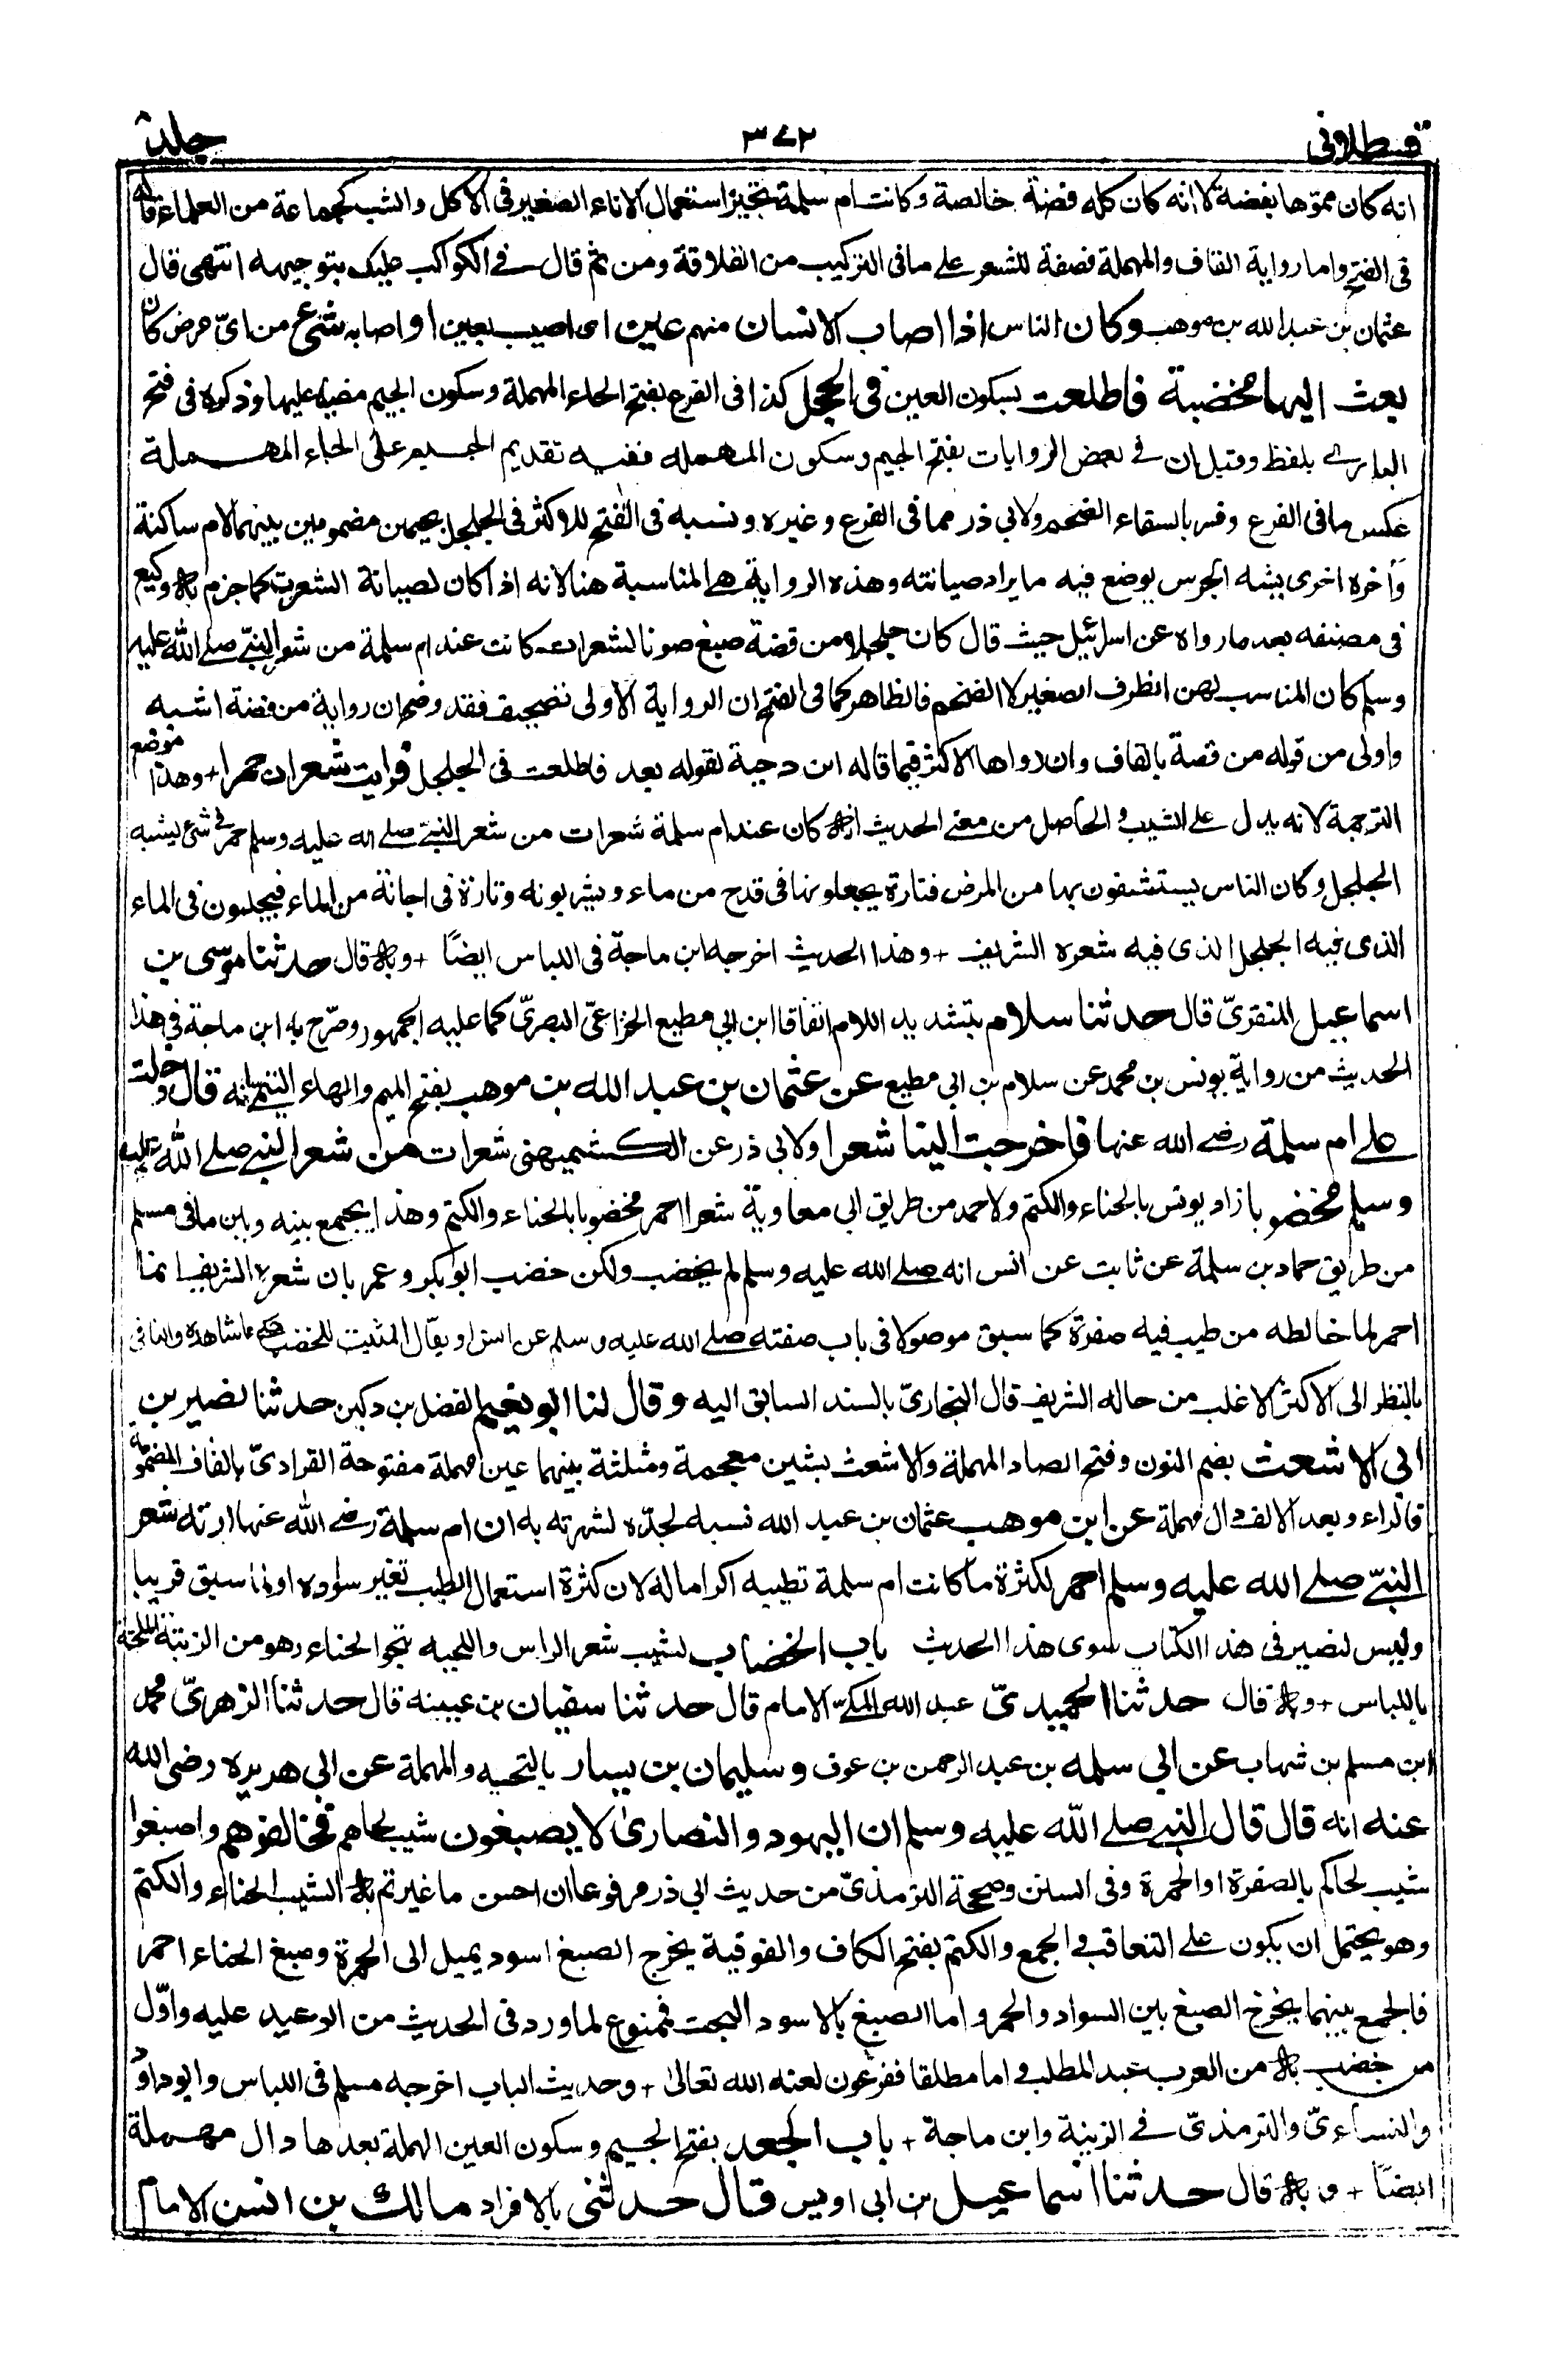 قسطلانى ٣٧٢ جلد ٨
انه كان مموها بفضة لا انه كان كله فضة خالصة وكانت ام سلمة تجيز استعمال الاناء الصغير فى الاكل والشرب كجماعة من العلماء قاله
فى الفتح واما رواية القاف والمهملة فصفة للشعر على ما فى التركيب من القلاقة ومن ثم قال فى الكواكب عليك بتوجيهه انتهى قال
عثمان بن عبد الله بن موهب وكان الناس اذا اصاب الانسان منهم عين اى اصيب بعين او اصابه شئ من اىّ مرض كان
بعث اليها مخضبة فاطلعت بسكون العين فى الحجل كذا فى الفرع بفتح الحاء المهملة وسكون الجيم مضببا عليها وذكره فى فتح
البارى بلفظ وقيل ان فى بعض الروايات بفتح الجيم وسكون المهمله ففيه تقديم الجيم على الحاء المهملة
عكس ما فى الفرع وفسر بالسقاء الضخم ولابي ذر مما فى الفرع وغيره ونسبه فى الفتح للاكثر فى الجلجل بجيمين مضمومين بينهما لام ساكنة
وآخره اخرى يشبه الجرس يوضع فيه ما يراد صيانته وهذه الرواية هى المناسبة هنا لانه اذا كان لصيانة الشعرات كما جزم به وكيع
فى مصنفه بعد ما رواه عن اسرائيل حيث قال كان جلجلا من فضة صيغ صونا لشعرات كانت عند ام سلمة من شعر النبىّ صلى الله عليه
وسلم كان المناسب لهن الظرف الصغير لا الضخم فالظاهر كما فى الفتح ان الرواية الاولى تصحيف فقد وضح ان رواية من فضة اشبه
واولى من قوله من قصة بالقاف وان رواها الاكثر فيما قاله ابن دحية لقوله بعد فاطلعت فى الجلجل فرايت شعرات حمرا + وهذا موضع
الترجمة لانه يدل على الشيب والحاصل من معنى الحديث انه كان عند ام سلمة شعرات من شعر النبىّ صلى الله عليه وسلم حمر فى شئ يشبه
الجلجل وكان الناس يستشفون بها من المرض فتارة يجعلونها فى قدح من ماء ويشربونه وتارة فى اجانة من الماء فيجلسون فى الماء
الذى فيه الجلجل الذى فيه شعره الشريف + وهذا الحديث اخرجه ابن ماجة فى اللباس ايضًا + وبه قال حدثنا موسى بن
اسماعيل المنقرىّ قال حدثنا سلام بتشديد اللام اتفاقا ابن ابي مطيع الخزاعىّ البصرىّ كما عليه الجمهور وصرّح به ابن ماجة فى هذا
الحديث من رواية يونس بن محمد عن سلام بن ابى مطيع عن عثمان بن عبد الله بن موهب بفتح الميم والهاء التيمى انه قال دخلت
على ام سلمة رضى الله عنها فاخرجت الينا شعرا ولابى ذر عن الكشميهنى شعرات من شعر النبى صلى الله عليه
وسلم مخضوبا زاد يونس بالحناء والكتم ولاحمد من طريق ابى معاوية شعرا احمر مخضوبا بالحناء والكتم وهذا يجمع بينه وبين ما فى مسلم
من طريق حماد بن سلمة عن ثابت عن انس انه صلى الله عليه وسلم لم يخضب ولكن خضب ابو بكر وعمر بان شعره الشريف انما
احمر لما خالطه من طيب فيه صفرة كما سبق موصولا فى باب صفته صلى الله عليه وسلم عن انس او يقال المثبت للخضب حكى ما شاهده والنافى
بالنظر الى الاكثر الاغلب من حاله الشريف قال البخارىّ بالسند السابق اليه وقال لنا ابو نعيم الفضل بن دكين حدثنا نصير بن
ابى الاشعث بضم النون وفتح الصاد المهملة والاشعث بشين معجمة ومثلثة بينهما عين مهملة مفتوحة القرادىّ بالقاف المضمومة
فالراء وبعد الالف دال مهملة عن ابن موهب عثمان بن عبد الله نسبه لجدّه لشهرته به ان ام سلمة رضى الله عنها ارته شعر
النبىّ صلى الله عليه وسلم احمر لكثرة ما كانت ام سلمة تطيبه اكراما له لان كثرة استعمال الطيب تغير سواده او لما سبق قريبا
وليس لنصير فى هذا الكتاب سوى هذا الحديث باب الخضاب لشيب شعر الراس واللحيه بنحو الحناء وهو من الزينة الملحقة
باللباس + وبه قال حدثنا الحميدىّ عبد الله المكىّ الامام قال حدثنا سفيان بن عيينه قال حدثنا الزهرىّ محمد
ابن مسلم بن شهاب عن ابى سلمه بن عبد الرحمن بن عوف وسليمان بن يسار بالتحيه والمهملة عن ابى هريره رضى الله
عنه انه قال قال النبى صلى الله عليه وسلم ان اليهود والنصارى لا يصبغون شيب لحاهم فخالفوهم واصبغوا
شيب لحاكم بالصفرة او الحمرة وفى السنن وصححه الترمذىّ من حديث ابى ذر مرفوعا ان احسن ما غيرتم به الشيب الحناء والكتم
وهو يحتمل ان يكون على التعاقب والجمع والكتم بفتح الكاف والفوقية يخرج الصبغ اسود يميل الى الحمرة وصبغ الحناء احمر
فالجمع بينهما يخرج الصبغ بين السواد والحمرة واما الصبغ بالاسود البحت فممنوع لما ورد فى الحديث من الوعيد عليه واوّل
من خضب به من العرب عبد المطلب واما مطلقا ففرعون لعنه الله تعالى + وحديث الباب اخرجه مسلم فى اللباس وابو داود
والنساءىّ والترمذىّ فى الزينة وابن ماجة + باب الجعد بفتح الجيم وسكون العين المهملة بعدها دال مهملة
ايضًا + وبه قال حدثنا اسماعيل بن ابى اويس قال حدثنى بالافراد مالك بن انس الامام